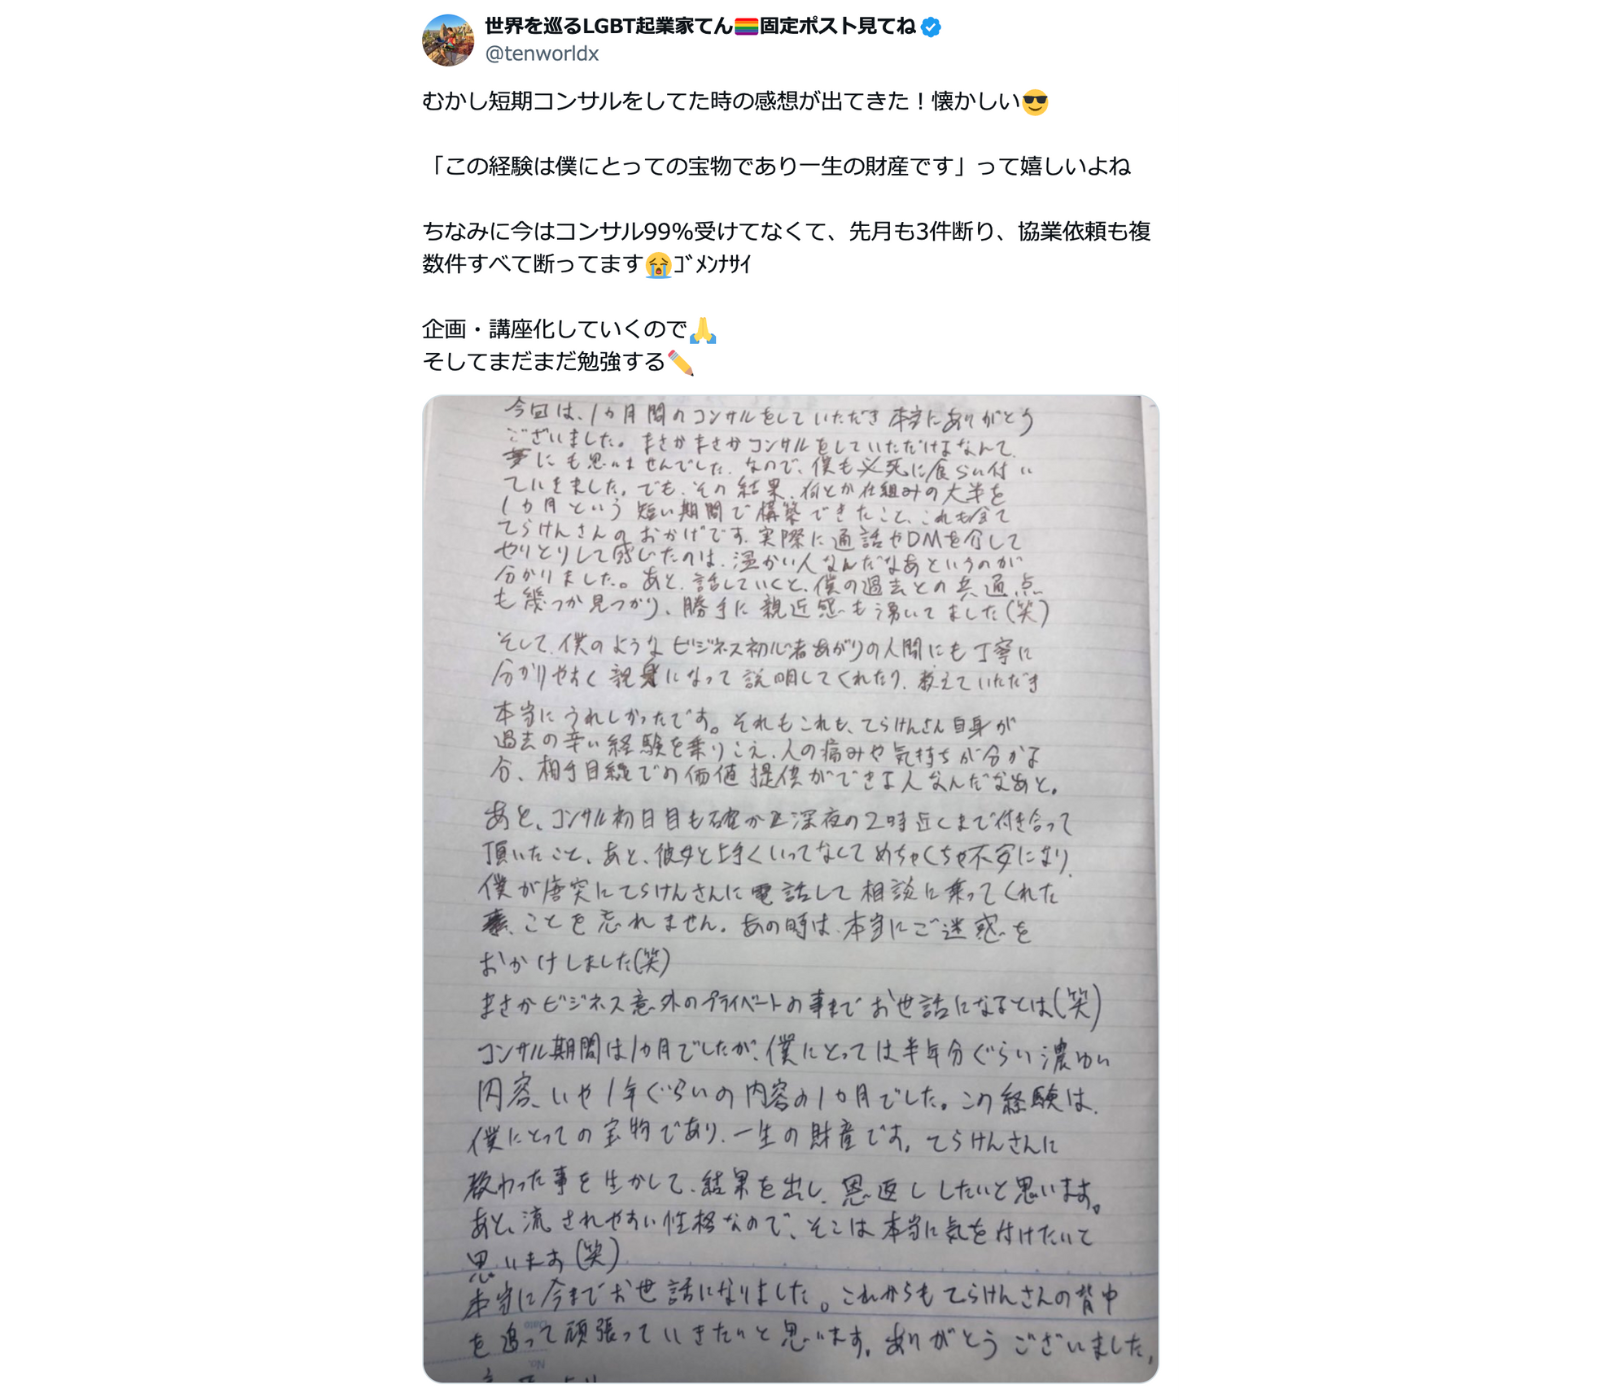 世界を巡るLGBT起業家てん🏳️‍🌈固定ポスト見てね
@tenworldx
むかし短期コンサルをしてた時の感想が出てきた！懐かしい😎
「この経験は僕にとっての宝物であり一生の財産です」って嬉しいよね
ちなみに今はコンサル99%受けてなくて、先月も3件断り、協業依頼も複
数件すべて断ってます😭ｺﾞﾒﾝﾅｻｲ
企画・講座化していくので🙏
そしてまだまだ勉強する✏️
今回は、1カ月間のコンサルをしていただき本当にありがとう
ございました。まさかまさかコンサルをしていただけるなんて、
夢にも思いませんでした。なので、僕も必死に食らい付い
ていきました。でも、その結果、何とか仕組みの大半を
1カ月という短い期間で構築できたこと、これも全て
てらけんさんのおかげです。実際に通話やDMを介して
やりとりして感じたのは、温かい人なんだなあというのが
分かりました。あと、話していくと、僕の過去との共通点
も幾つか見つかり、勝手に親近感も湧いてました(笑)
そして、僕のようなビジネス初心者あがりの人間にも丁寧に
分かりやすく親身になって説明してくれたり、教えていただき
本当にうれしかったです。それもこれも、てらけんさん自身が
過去の辛い経験を乗りこえ、人の痛みや気持ちが分かる
分、相手目線での価値提供ができる人なんだなあと。
あと、コンサル初日目も確か深夜の2時近くまで付き合って
頂いたこと、あと、彼女と上手くいってなくてめちゃくちゃ不安になり、
僕が唐突にてらけんさんに電話して相談に乗ってくれた
ことを忘れません。あの時は、本当にご迷惑を
おかけしました(笑)
まさかビジネス意外のプライベートの事までお世話になるとは(笑)
コンサル期間は1カ月でしたが、僕にとっては半年分ぐらい濃ゆい
内容、いや1年ぐらいの内容の1カ月でした。この経験は、
僕にとっての宝物であり、一生の財産です。てらけんさんに
教わった事を生かして、結果を出し、恩返ししたいと思います。
あと、流されやすい性格なので、そこは本当に気を付けたいて
思います(笑)
本当に今までお世話になりました。これからもてらけんさんの背中
を追って頑張っていきたいと思います。ありがとうございました。